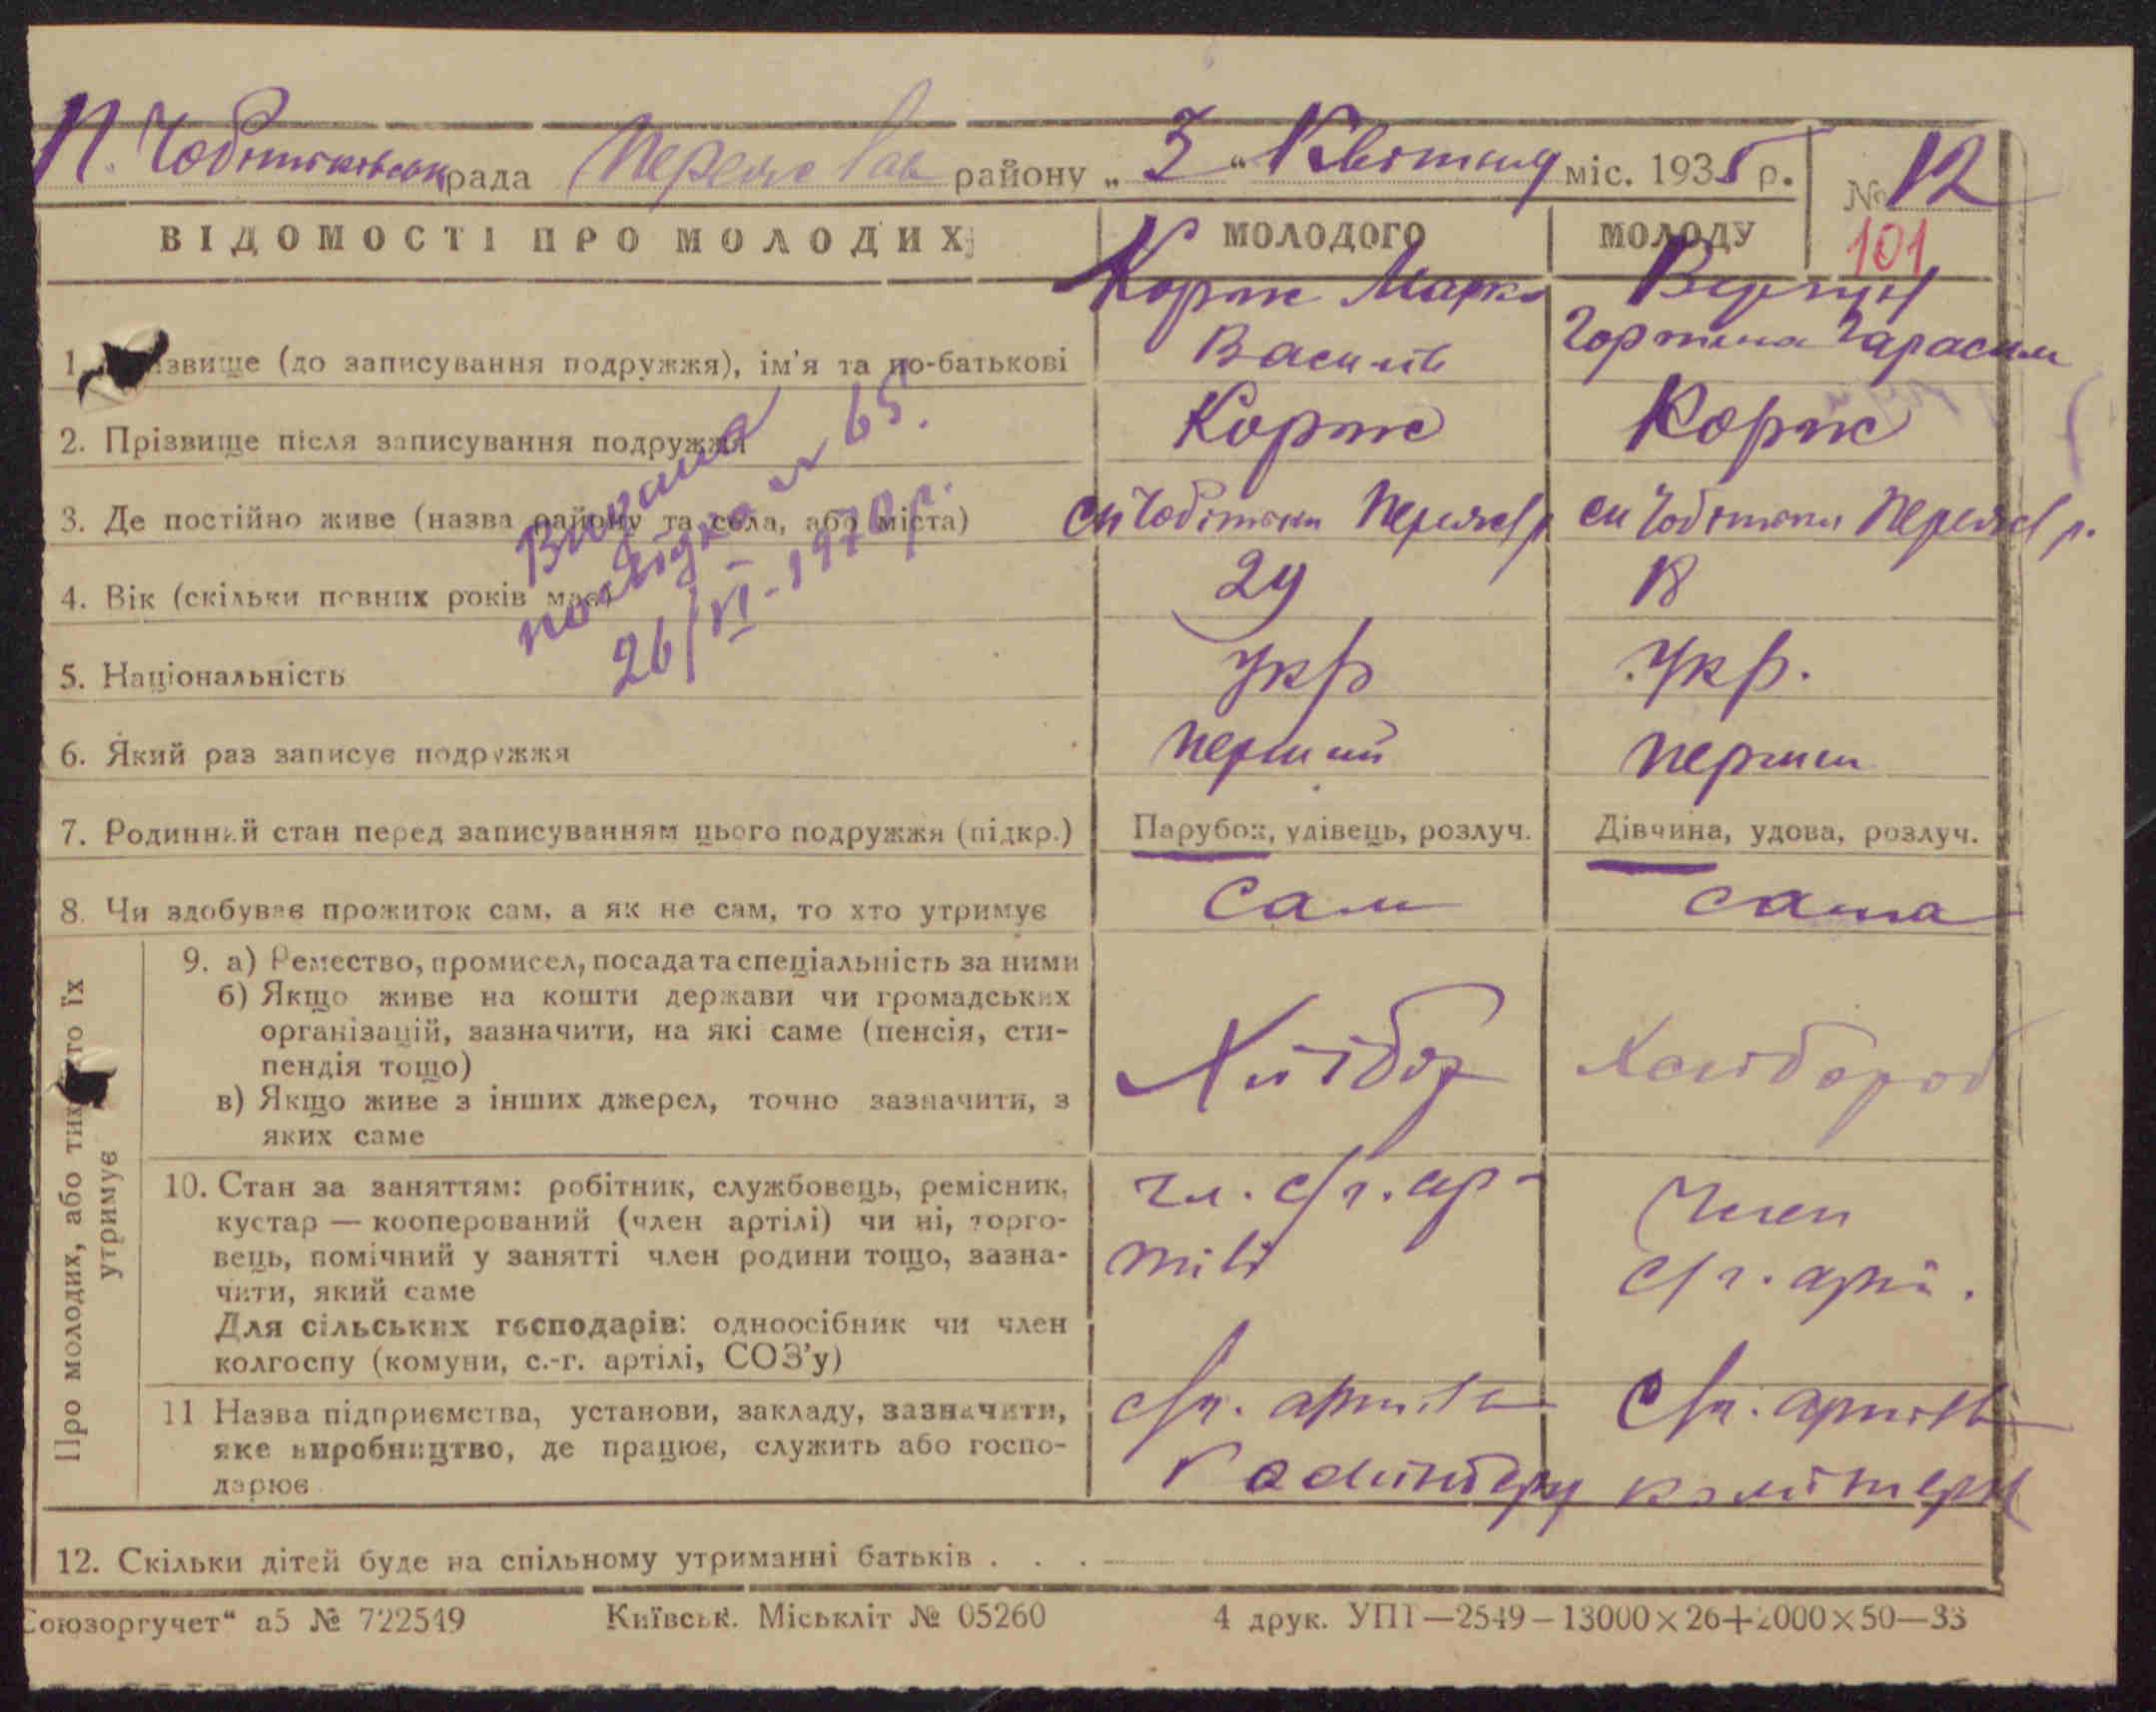 П. Чобітьківськ рада Переяслав району „ 3 “ Квітня міс. 1935 р. № 12
ВІДОМОСТІ ПРО МОЛОДИХ МОЛОДОГО МОЛОДУ 101
1. звище (до записування подружжя), ім'я та по-батькові Корж Марко Василів Тарасим
2. Прізвище після записування подружжя Корж Корж
3. Де постійно живе (назва району та села, або міста) Чобітьки Переясл р Чобітьки Переясл р.
4. Вік (скільки повних років має) 24 18
5. Національність укр укр.
6. Який раз записує подружжя перший перший
7. Родинний стан перед записуванням цього подружжя (підкр.) Парубок, удівець, розлуч. Дівчина, удова, розлуч.
8. Чи здобуває прожиток сам, а як не сам, то хто утримує сам сама
Видано
посвідка № 65.
26/VI-1970 р.
Про молодих, або тих, хто їх
утримує
9. а) Ремество, промисел, посада та спеціальність за ними
б) Якщо живе на кошти держави чи громадських
організацій, зазначити, на які саме (пенсія, сти-
пендія тощо)
в) Якщо живе з інших джерел, точно зазначити, з
яких саме
Хлібор Хлібороб
10. Стан за заняттям: робітник, службовець, ремісник,
кустар — кооперований (член артілі) чи ні, торго-
вець, помічний у занятті член родини тощо, зазна-
чити, який саме
Для сільських господарів: одноосібник чи член
колгоспу (комуни, с.-г. артілі, СОЗ'у)
чл. с/г. ар-
тілі
Член
с/г. арті.
11 Назва підприємства, установи, закладу, зазначити,
яке виробництво, де працює, служить або госпо-
дарює
с/г. артіль с/г. артіль
Комінтерну
12. Скільки дітей буде на спільному утриманні батьків . . .
Союзоргучет“ а5 № 722549 Київськ. Міськліт № 05260 4 друк. УПП—2549—13000×26+2000×50—33